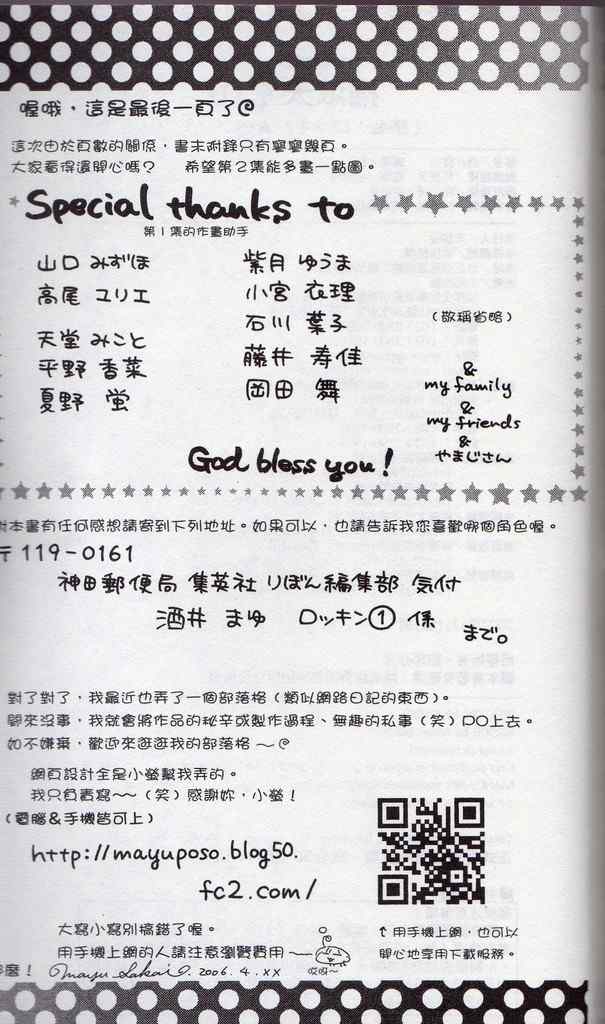 喔哦，這是最後一頁了@
這次由於頁數的關係，書末附錄只有寥寥幾頁。
大家看得還開心嗎？ 希望第2集能多畫一點圖。
Special thanks to
第1集的作畫助手
山口 みずほ
高尾 ユリエ
天堂 みこと
平野 香菜
夏野 蛍
紫月 ゆうま
小宮 衣理
石川 葉子
藤井 寿佳
岡田 舞
（敬稱省略）
&
my family
&
my friends
&
やまじさん
God bless you!
對本書有任何感想請寄到下列地址。如果可以，也請告訴我您喜歡哪個角色喔。
〒119-0161
神田郵便局 集英社 りぼん編集部 気付
酒井 まゆ ロッキン① 係
まで。
對了對了，我最近也弄了一個部落格（類似網路日記的東西）。
閒來沒事，我就會將作品的秘辛或製作過程、無趣的私事（笑）PO上去。
如不嫌棄，歡迎來逛逛我的部落格～@
網頁設計全是小螢幫我弄的。
我只負責寫~~（笑）感謝妳，小螢！
（電腦&手機皆可上）
http://mayuposo.blog50.
fc2.com/
大寫小寫別搞錯了喔。
用手機上網的人請注意瀏覽費用～
哎哎~
↑用手機上網，也可以
開心地享用下載服務。
麼！ Mayu Sakai 2006.4.XX